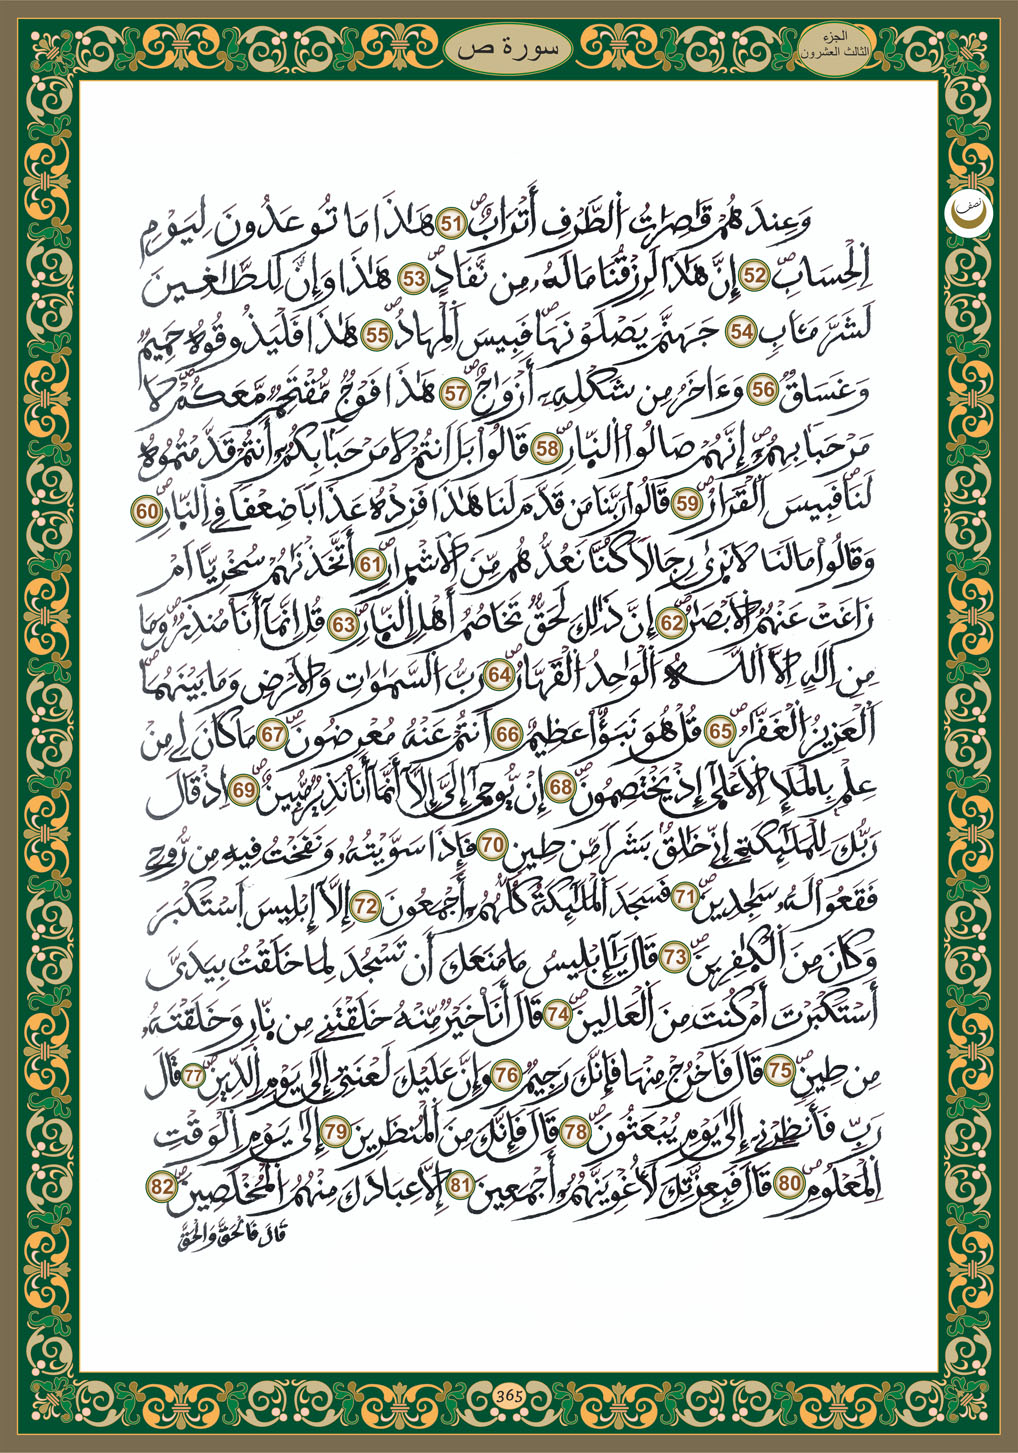 سورة ص
الجزء
الثالث العشرون
نصف
وَعِندَهُمْ قَٰصِرَٰتُ اُلطَّرْفِ أَتْرَابٌ 51 هَٰذَا مَا تُوعَدُونَ لِيَوْمِ
اِلْحِسَابِ 52 إِنَّ هَٰذَا لَرِزْقُنَا مَا لَهُۥ مِن نَّفَادٍ 53 هَٰذَا وَإِنَّ لِلطَّٰغِينَ
لَشَرَّ مَـَٔابٍ 54 جَهَنَّمَ يَصْلَوْنَهَا فَبِيسَ اَلْمِهَادُ 55 هَٰذَا فَلْيَذُوقُوهُ حَمِيمٌ
وَغَسَاقٌ 56 وَءَاخَرُ مِن شَكْلِهِۦ أَزْوَٰجٌ 57 هَٰذَا فَوْجٌ مُّقْتَحِمٌ مَّعَكُمْ لَا
مَرْحَبَا بِهِمُۥ إِنَّهُمْ صَالُوا اُلنّارِ 58 قَالُوا بَلَ اَنتُمْ لَا مَرْحَبَا بِكُمُۥ أَنتُمْ قَدَّمْتُمُوهُ
لَنَا فَبِيسَ اَلْقَرَارُ 59 قَالُوا رَبَّنَا مَن قَدَّمَ لَنَا هَٰذَا فَزِدْهُ عَذَابًا ضِعْفًا فِي اِلنّارِ 60
وَقَالُوا مَا لَنَا لَا نَرَىٰ رِجَالًا كُنَّا نَعُدُّهُم مِّنَ اَلَاشْرارِ 61 أَتَّخَذْنَٰهُمْ سُخْرِيًّا اَمْ
زَاغَتْ عَنْهُمُ اُلَابْصَٰرُ 62 إِنَّ ذَٰلِكَ لَحَقٌّ تَخَاصُمُ أَهْلِ اِلنّارِ 63 قُلِ اِنَّمَا أَنَا مُنذِرٌ وَمَا
مِنِ اِلَٰهٍ اِلَّا اَللَّهُ اُلْوَٰحِدُ اُلْقَهَّارُ 64 رَبُّ اُلسَّمَٰوَٰتِ وَالَارْضِ وَمَا بَيْنَهُمَا
اَلْعَزِيزُ اُلْغَفَّٰرُ 65 قُلْ هُوَ نَبَؤٌا عَظِيمٌ 66 اَنتُمْ عَنْهُ مُعْرِضُونَ 67 مَا كَانَ لِي مِنْ
عِلْمٍ بِالْمَلَإِ اِلَاعْلَىٰ إِذْ يَخْتَصِمُونَ 68 إِن يُّوحَىٰ إِلَيَّ إِلَّا أَنَّمَا أَنَا نَذِيرٌ مُّبِينٌ 69 اِذْ قَالَ
رَبُّكَ لِلْمَلَٰٓئِكَةِ إِنِّي خَٰلِقٌ بَشَرًا مِّن طِينٍ 70 فَإِذَا سَوَّيْتُهُۥ وَنَفَخْتُ فِيهِ مِن رُّوحِي
فَقَعُوا لَهُۥ سَٰجِدِينَ 71 فَسَجَدَ اَلْمَلَٰٓئِكَةُ كُلُّهُمُۥ أَجْمَعُونَ 72 إِلَّا إِبْلِيسَ اَسْتَكْبَرَ
وَكَانَ مِنَ اَلْكٰفِرِينَ 73 قَالَ يَٰٓإِبْلِيسُ مَا مَنَعَكَ أَن تَسْجُدَ لِمَا خَلَقْتُ بِيَدَيَّ
أَسْتَكْبَرْتَ أَمْ كُنتَ مِنَ اَلْعَالِينَ 74 قَالَ أَنَا خَيْرٌ مِّنْهُ خَلَقْتَنِي مِن نّارٍ وَخَلَقْتَهُۥ
مِن طِينٍ 75 قَالَ فَاخْرُجْ مِنْهَا فَإِنَّكَ رَجِيمٌ 76 وَإِنَّ عَلَيْكَ لَعْنَتِي إِلَىٰ يَوْمِ اِلدِّينِ 77 قَالَ
رَبِّ فَأَنظِرْنِي إِلَىٰ يَوْمِ يُبْعَثُونَ 78 قَالَ فَإِنَّكَ مِنَ اَلْمُنظَرِينَ 79 إِلَىٰ يَوْمِ اِلْوَقْتِ
اِلْمَعْلُومِ 80 قَالَ فَبِعِزَّتِكَ لَأُغْوِيَنَّهُمُۥ أَجْمَعِينَ 81 إِلَّا عِبَادَكَ مِنْهُمُ اُلْمُخْلَصِينَ 82
قَالَ فَالْحَقَّ وَالْحَقَّ
365